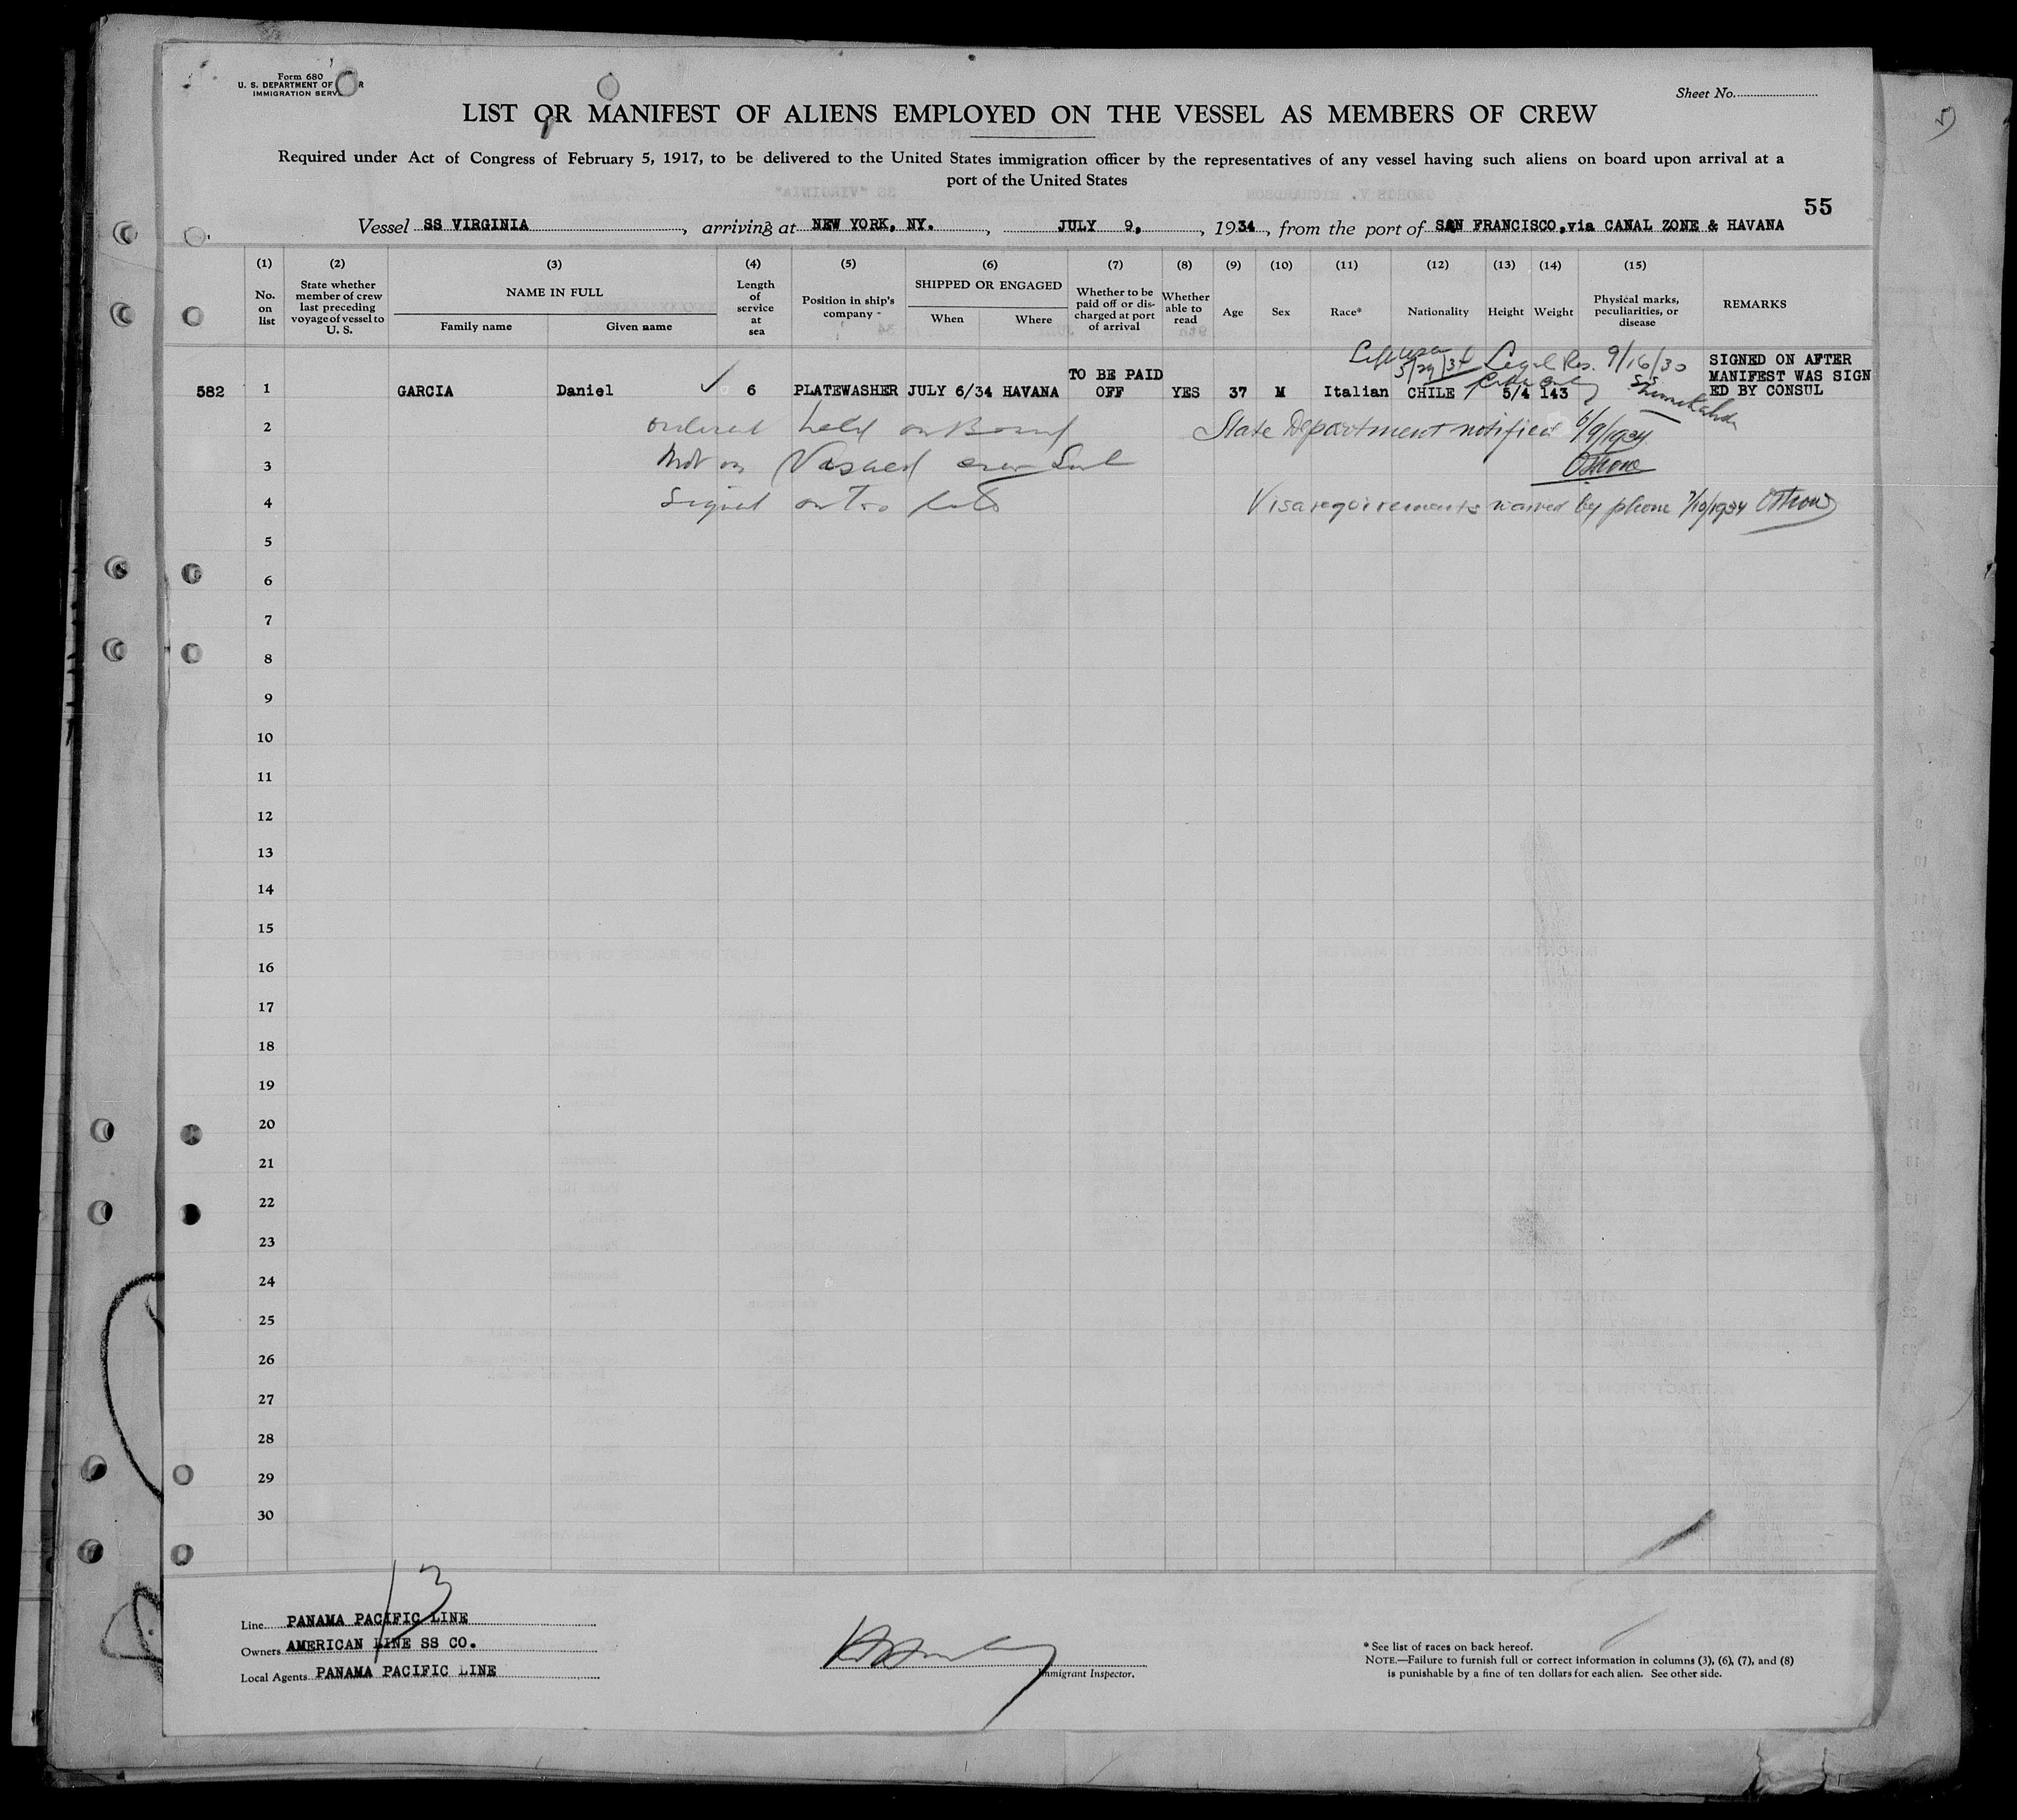 Form 680
U. S. DEPARTMENT OF
IMMIGRATION SERV
Sheet No.
LIST OR MANIFEST OF ALIENS EMPLOYED ON THE VESSEL AS MEMBERS OF CREW
Required under Act of Congress of February 5, 1917, to be delivered to the United States immigration officer by the representatives of any vessel having such aliens on board upon arrival at a
port of the United States
55
Vessel SS VIRGINIA, arriving at NEW YORK, NY., JULY 9, 1934, from the port of SAN FRANCISCO, via CANAL ZONE & HAVANA
(1) (2) (3) (4) (5) (6) (7) (8) (9) (10) (11) (12) (13) (14) (15)
No. on list
State whether member of crew last preceding voyage of vessel to U. S.
NAME IN FULL
Family name Given name
Length of service at sea
Position in ship's company
SHIPPED OR ENGAGED
When Where
Whether to be paid off or discharged at port of arrival
Whether able to read
Age Sex Race* Nationality Height Weight
Physical marks, peculiarities, or disease
REMARKS
5/29/34 Legal Res. 9/16/30
582 1 GARCIA Daniel ✓ 6 PLATEWASHER JULY 6/34 HAVANA TO BE PAID OFF YES 37 M Italian CHILE 5/4 143 SIGNED ON AFTER MANIFEST WAS SIGNED BY CONSUL
2 ordered held on Board State Department notified 6/9/1934
3 Not on Visaed crew List
4 Signed on Too late Visa requirements waived by phone 7/10/1934
5
6
7
8
9
10
11
12
13
14
15
16
17
18
19
20
21
22
23
24
25
26
27
28
29
30
13
Line PANAMA PACIFIC LINE
Owners AMERICAN LINE SS CO.
Local Agents PANAMA PACIFIC LINE
Immigrant Inspector.
* See list of races on back hereof.
NOTE.—Failure to furnish full or correct information in columns (3), (6), (7), and (8)
is punishable by a fine of ten dollars for each alien. See other side.